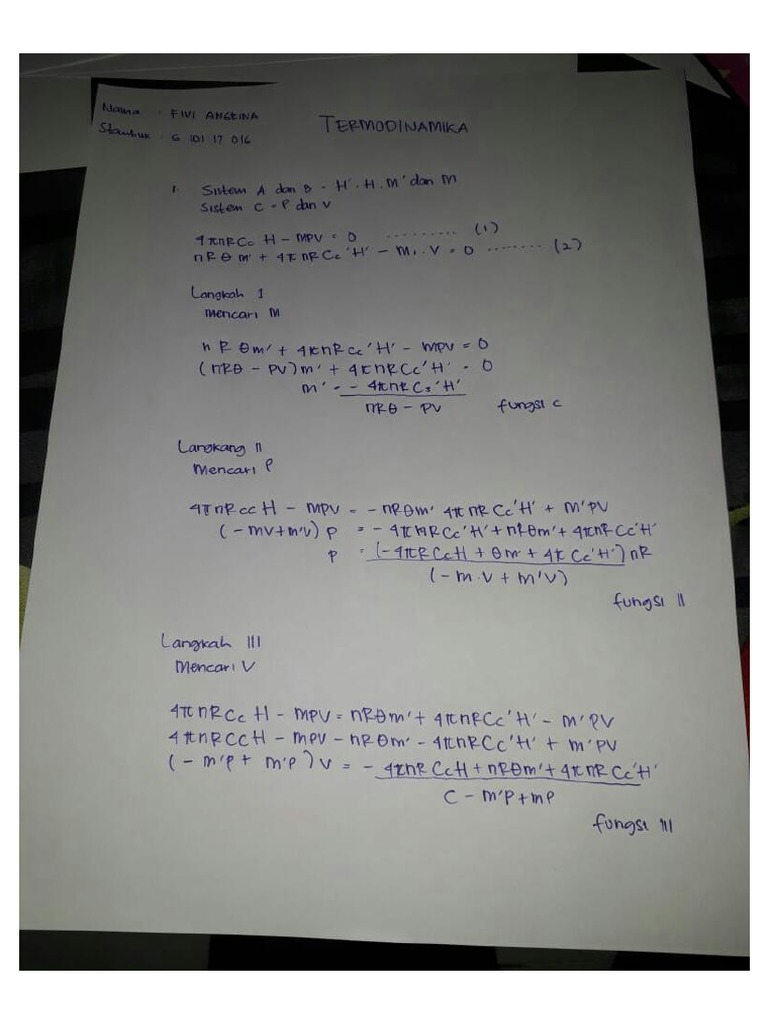 Nama : FIVI ANGEINA
Stambuk : G 101 17 016
TERMODINAMIKA
1. Sistem A dan B - H'. H. M' dan M
Sistem C = P dan V
4πnRCc H - MPV = 0 ......... (1)
nRθm' + 4πnRCc'H' - M,. V = 0 ........ (2)
Langkah I
Mencari M
nRθm' + 4πnRCc'H' - MPV = 0
(nRθ - PV)m' + 4πnRCc'H' = 0
m' = - 4πnRCc'H'
nRθ - PV fungsi c
Langkang II
Mencari P
4πnRCCH - MPV = - nRθm' 4πnRCc'H' + M'PV
(-mV+m'V) P = - 4πnRCc'H' + nRθm' + 4πnRCc'H'
P = (-4πRCcH + θm' + 4πCc'H') nR
(-m.V + m'V)
fungsi II
Langkah III
Mencari V
4πnRCc H - MPV = nRθm' + 4πnRCc'H' - m'PV
4πnRCCH - MPV - nRθm' - 4πnRCc'H' + m'PV
(- m'P + m'P) V = - 4πnRCcH + nRθm' + 4πnRCc'H'
C - m'P + mP
fungsi III